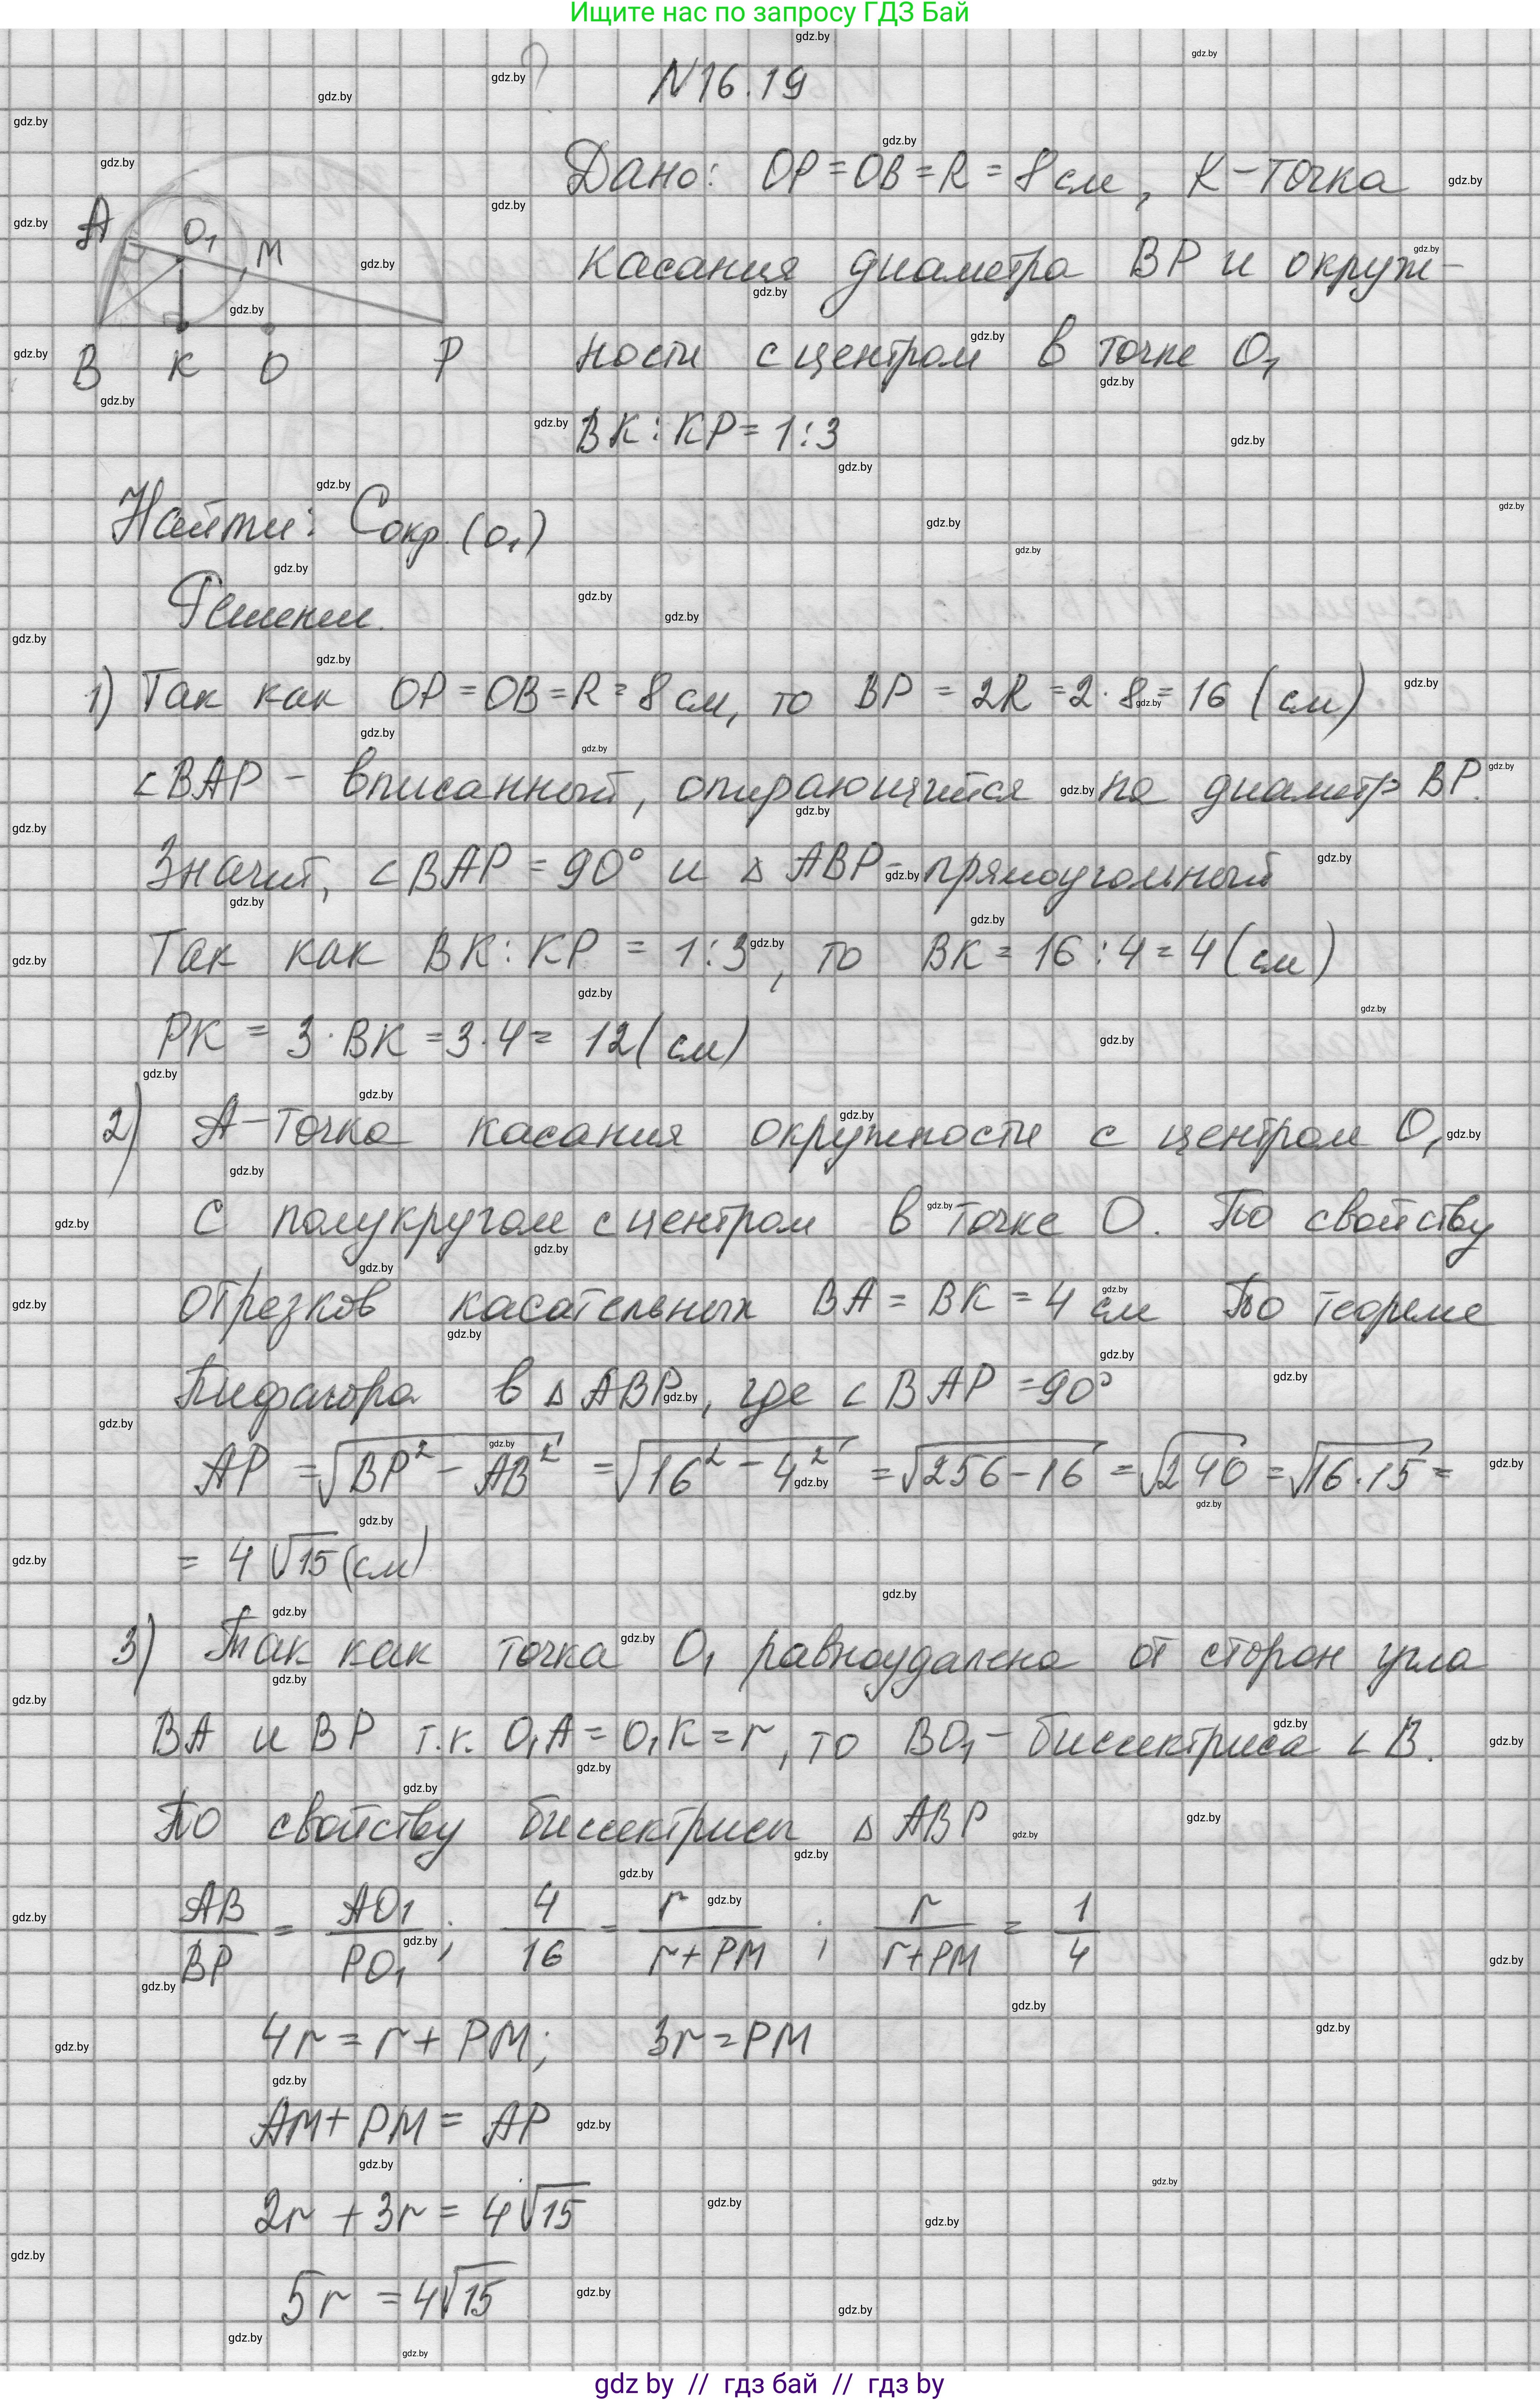 Ищите нас по запросу ГДЗ Бай
N16.19
Дано: OP = OB = R = 8 см, K - точка
касания диаметра BP и окруж-
ности с центром в точке O₁
BK : KP = 1 : 3
A O₁ M
B K O P
Найти: Cокр. (O₁)
Решение.
1) Так как OP = OB = R = 8 см, то BP = 2R = 2 · 8 = 16 (см)
∠BAP - вписанный, опирающийся на диаметр BP.
Значит, ∠BAP = 90° и △ABP - прямоугольный
Так как BK : KP = 1 : 3, то BK = 16 : 4 = 4 (см)
PK = 3 · BK = 3 · 4 = 12 (см)
2) A - точка касания окружности с центром O₁
с полукругом с центром в точке O. По свойству
отрезков касательных BA = BK = 4 см По теореме
Пифагора в △ABP, где ∠BAP = 90°
AP = √(BP² - AB²) = √(16² - 4²) = √(256 - 16) = √240 = √(16·15) =
= 4√15 (см)
3) Так как точка O₁ равноудалена от сторон угла
BA и BP т.к. O₁A = O₁K = r, то BO₁ - биссектриса ∠B.
По свойству биссектрисы △ABP
AB/BP = AO₁/PO₁; 4/16 = r/(r+PM); r/(r+PM) = 1/4
4r = r + PM; 3r = PM
AM + PM = AP
2r + 3r = 4√15
5r = 4√15
gdz by // гдз бай // гдз by